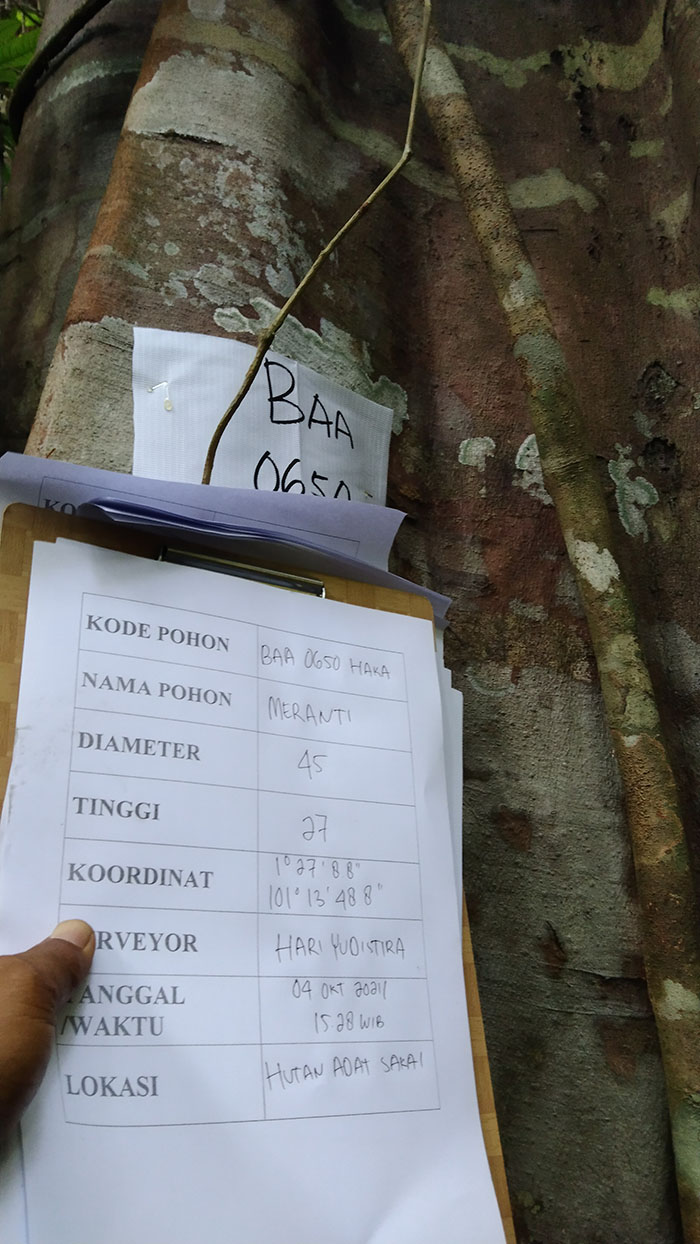 BAA
0650
KO
KODE POHON
BAA 0650 HAKA
NAMA POHON
MERANTI
DIAMETER
45
TINGGI
27
KOORDINAT
1° 27' 8 8"
101° 13' 48 8"
RVEYOR
HARI YUDISTIRA
TANGGAL
/WAKTU
04 OKT 2021/
15.28 WIB
LOKASI
HUTAN ADAT SAKAI